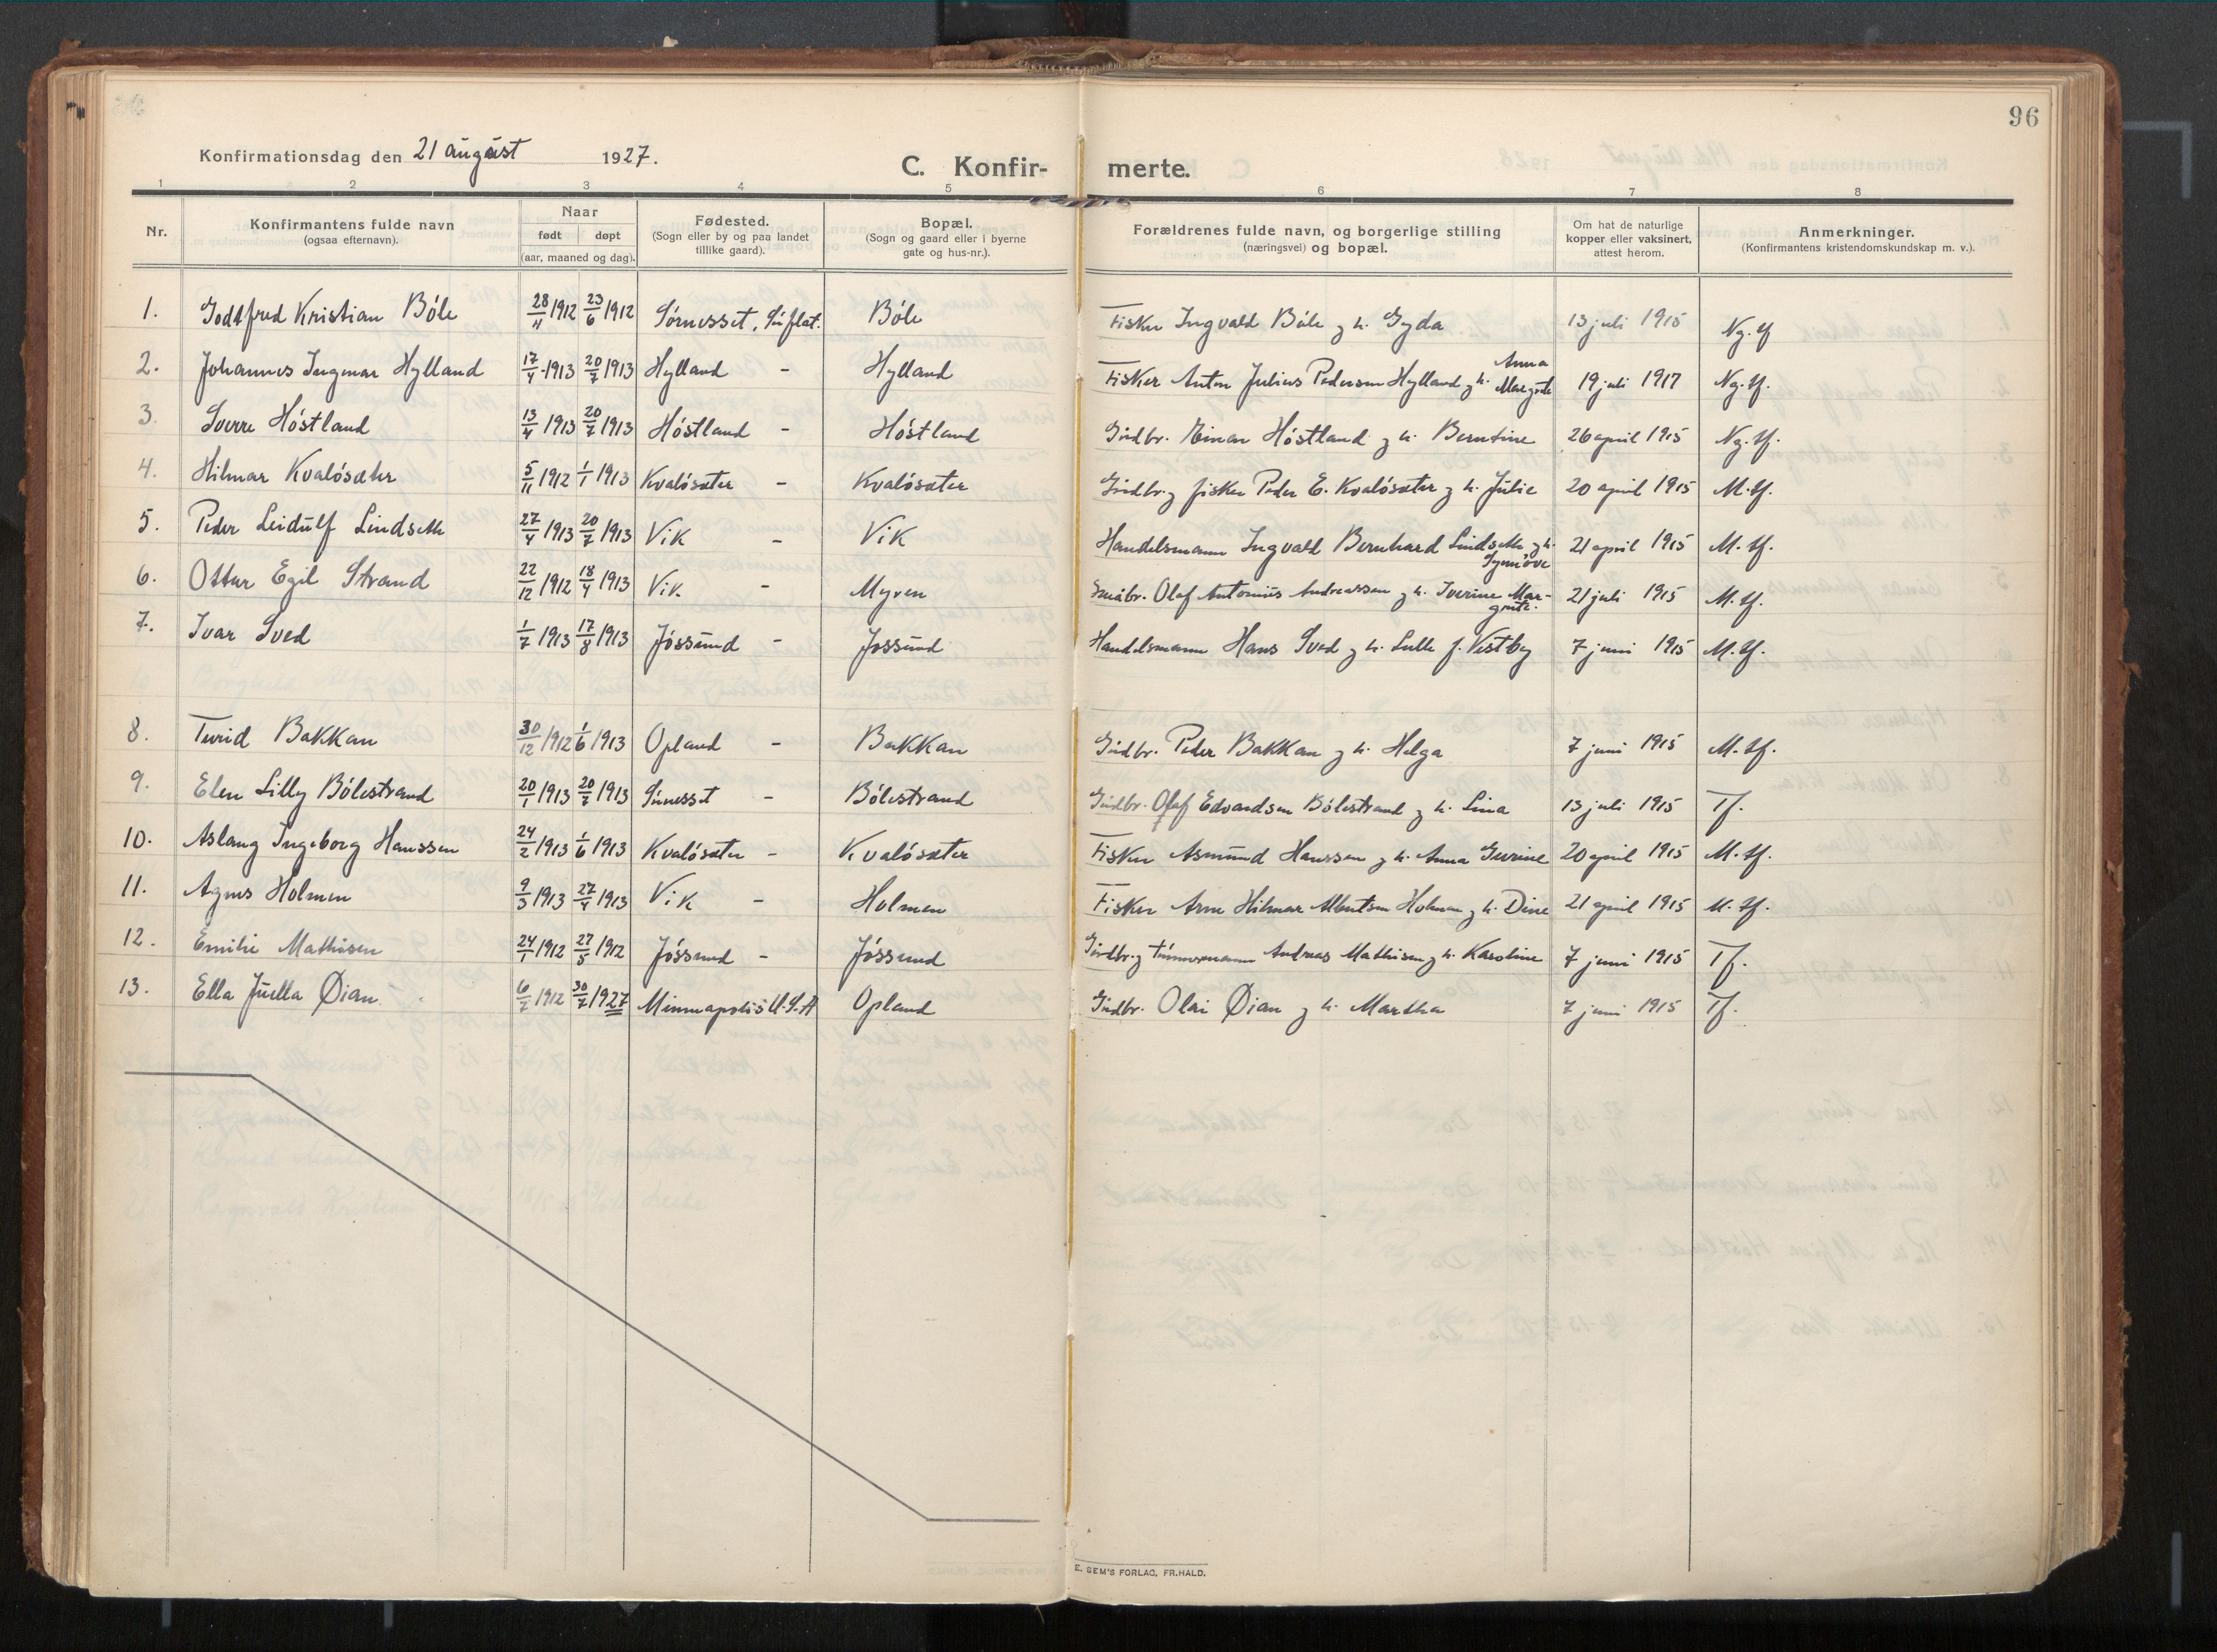 96
Konfirmationsdag den 21 august 1927.
C. Konfir- merte.
1 2 3 4 5 6 7 8
Nr. Konfirmantens fulde navn (ogsaa efternavn). Naar født døpt (aar, maaned og dag). Fødested. (Sogn eller by og paa landet tillike gaard). Bopæl. (Sogn og gaard eller i byerne gate og hus-nr.). Forældrenes fulde navn, og borgerlige stilling (næringsvei) og bopæl. Om hat de naturlige kopper eller vaksinert, attest herom. Anmerkninger. (Konfirmantens kristendomskundskap m. v.).
1. Godtfred Kristian Bóle 28/4 1912 23/6 1912 Sørnesset, Bóle Fisker Ingvald Bóle g h. Gyda 13 juli 1915 Ng. tf
2. Johannes Ingmar Hylland 17/4 1913 20/7 1913 Hylland - Hylland Fisker Anton Julius Pedersen Hylland g h. Anna Margrete 19 juli 1917 Ng. tf.
3. Sverre Hóstland 13/4 1913 20/7 1913 Hóstland - Hóstland Gårdbr. Einar Hóstland g h. Berntine 26 april 1915 Ng. tf.
4. Hilmar Kvalósæter 5/11 1912 1/1 1913 Kvalósæter - Kvalósæter Gårdbr. g fisker Peder E. Kvalósæter g h. Julie 20 april 1915 M. tf.
5. Peder Leidulf Lindseth 27/4 1913 20/7 1913 Vik - Vik Handelsmann Ingvald Bernhard Lindseth g h. Synnøve 21 april 1915 M. tf.
6. Ottar Egil Strand 22/12 1912 18/4 1913 Vik - Myren Småbr. Olaf Antonius Andreassen g h. Iverine Margrete. 21 juli 1915 M. tf.
7. Ivar Sved 1/7 1913 17/8 1913 Jóssund - Jossund Handelsmann Hans Sved g h. Lulle f. Vestby 7 juni 1915 M. tf.
8. Turid Bakkan 30/12 1912 1/6 1913 Opland - Bakkan Gårdbr. Peder Bakkan g h. Helga 7 juni 1915 M. tf.
9. Elen Lilly Bólestrand 20/1 1913 20/7 1913 - Bólestrand Gårdbr. Olaf Edvardsen Bólestrand g h. Lina 13 juli 1915 Tf.
10. Aslaug Ingeborg Hanssen 24/2 1913 1/6 1913 Kvalósæter - Kvalósæter Fisker Asmund Hanssen g h. Anna Gurine 20 april 1915 M. tf.
11. Agnes Holmen 9/3 1913 27/4 1913 Vik - Holmen Fisker Arne Hilmar Albertsen Holmen g h. Dine 21 april 1915 M. tf.
12. Emilie Mathisen 24/1 1912 27/5 1912 Jóssund - Jóssund Gårdbr. g tømmermann Andreas Mathisen g h. Karoline 7 juni 1915 Tf.
13. Ella Juella Øian 6/7 1912 30/7 1927 Minneapolis U.S.A Opland Gårdbr. Olai Øian g h. Martha 7 juni 1915 Tf.
E. SEM'S FORLAG, FR.HALD.